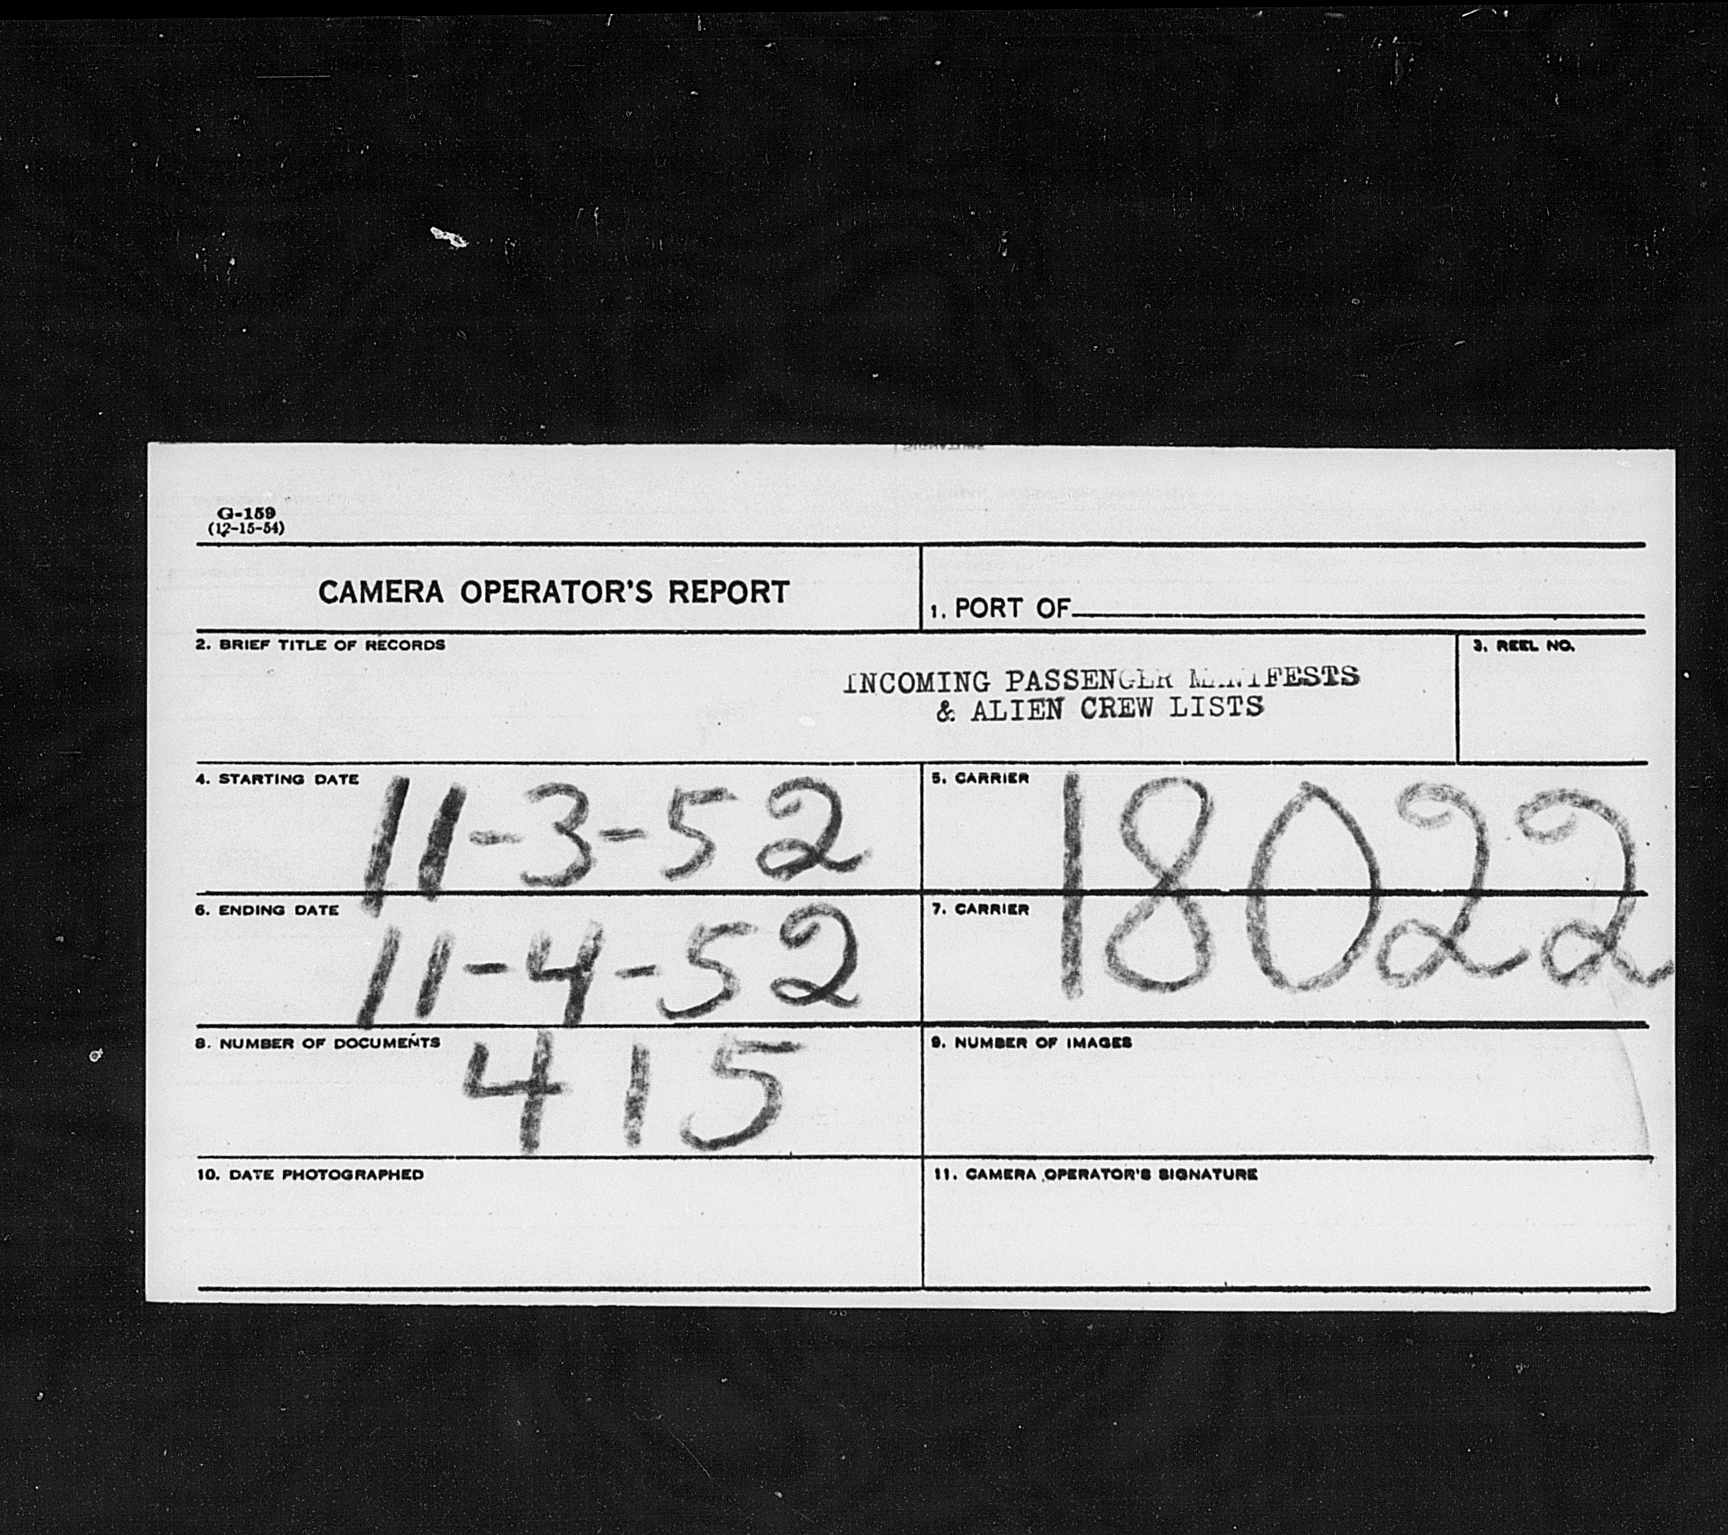 G-159
(12-15-54)
CAMERA OPERATOR'S REPORT
1. PORT OF
2. BRIEF TITLE OF RECORDS
3. REEL NO.
INCOMING PASSENGER MANIFESTS
& ALIEN CREW LISTS
4. STARTING DATE
11-3-52
5. CARRIER
18022
6. ENDING DATE
11-4-52
7. CARRIER
8. NUMBER OF DOCUMENTS
415
9. NUMBER OF IMAGES
10. DATE PHOTOGRAPHED
11. CAMERA OPERATOR'S SIGNATURE